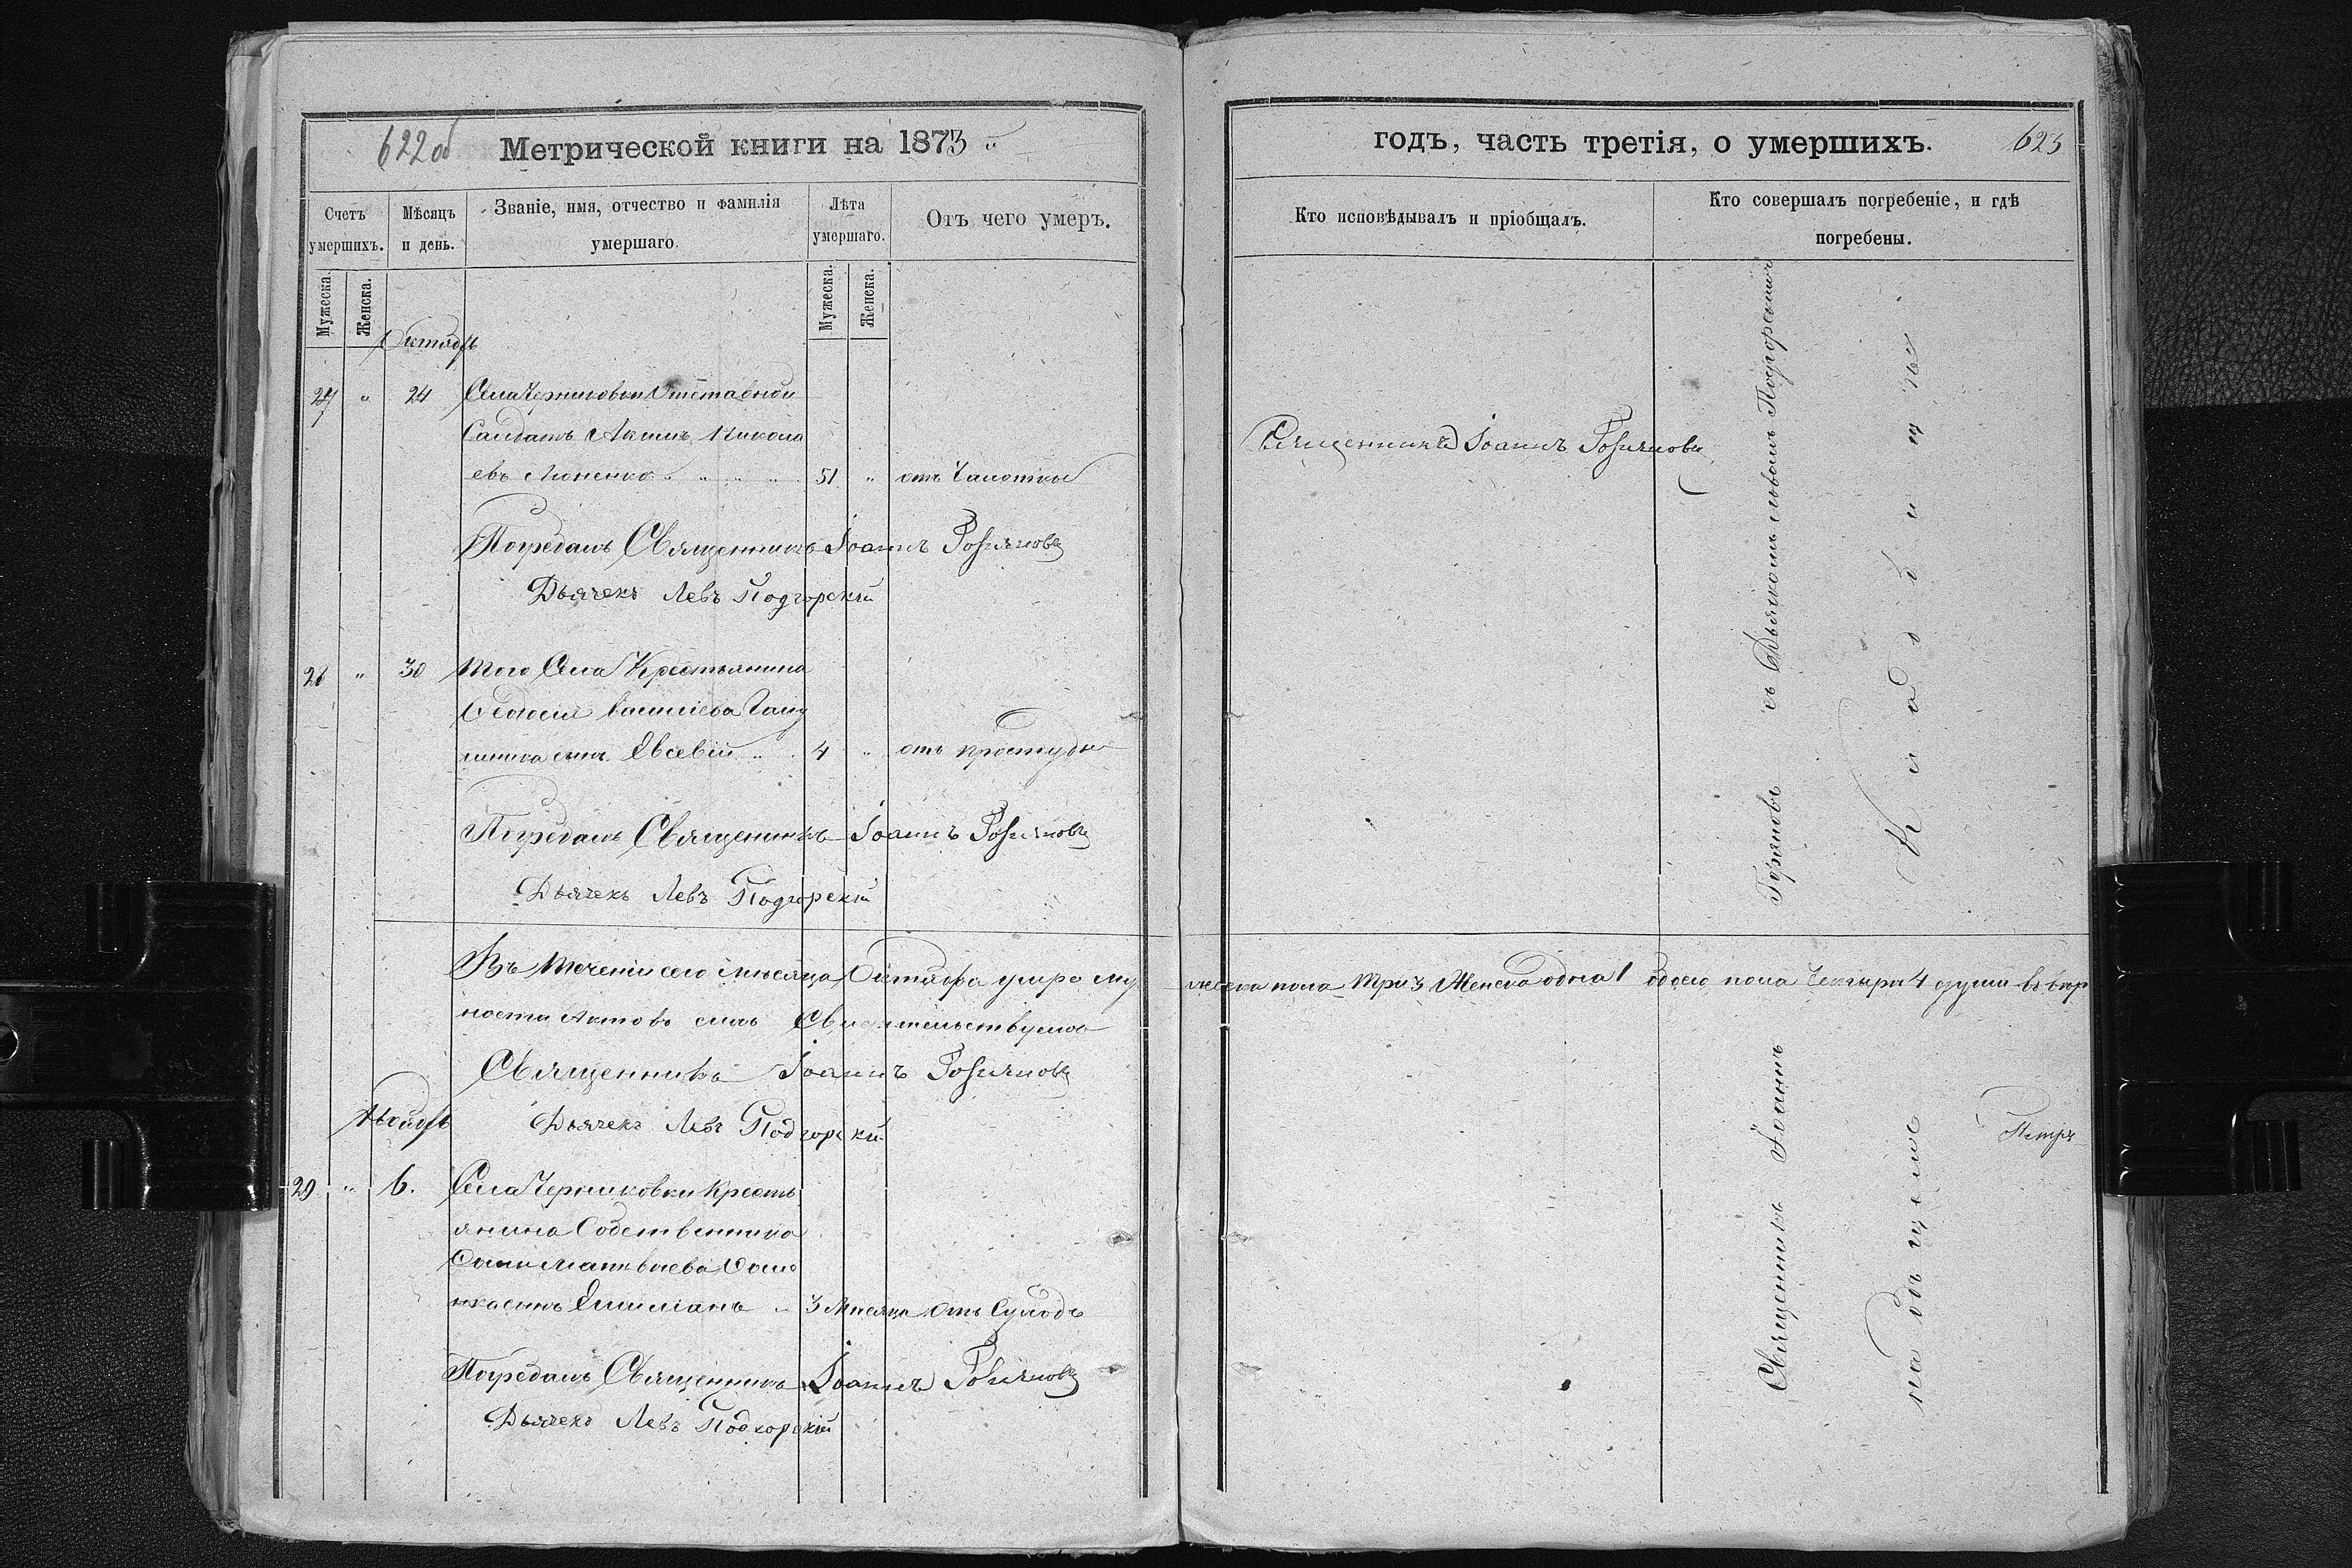 622 об
Метрической книги на 1873 й
Счетъ умершихъ.
Мѣсяцъ и день.
Званіе, имя, отчество и фамилія умершаго.
Лѣта умершаго.
Отъ чего умеръ.
Мужеска.
Женска.
Мужеска.
Женска.
Октябрь
27 " 24 Села Черниковки Отставной
Салдатъ Никола
евъ " " " " 51 " отъ Чахотки
Погребалъ Священникъ Іоаннъ
Дьячекъ Левъ Подгорскій
" 30 Того Села Крестьянина
Ѳеодосія Василіева
сынъ Евсевій " " 4 " отъ простуды
Погребалъ Священникъ Іоаннъ
Дьячекъ Левъ Подгорскій
Въ теченіи сего мѣсяца Октября умерло му
ности актовъ симъ Свидѣтельствуемъ
Священникъ Іоаннъ
Дьячекъ Левъ Подгорскій
Ноябрь
29 " 6. Села Черниковки Кресть
янина Собственника
Матвѣева
сынъ " 3 Мѣсяца Отъ
Погребалъ Священникъ Іоаннъ
Дьячекъ Левъ Подгорскій
годъ, часть третія, о умершихъ.
623
Кто исповѣдывалъ и пріобщалъ.
Кто совершалъ погребеніе, и гдѣ погребены.
Священникъ Іоаннъ
жеска пола три 3 Женска одна 1 обоего пола Четыри 4 души въ вѣр
Священникъ Іоаннъ съ Дьячкомъ Львомъ Подгорскимъ
на общемъ
Кладбищѣ
Петръ